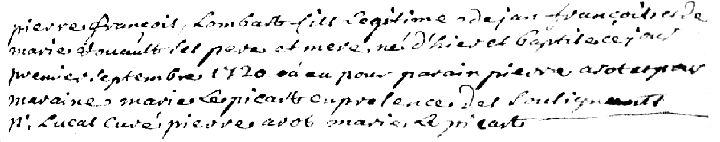 pierre françois Lombart fill Legitime de jan françois et de
marie Rouault ses pere et mere, né d'hier et baptise ce jour
premier septembre 1720 a eu pour parain pierre arot et pour
maraine marie Le picart en presence des soulignants
P. Lucas Curé pierre arot marie Le picart